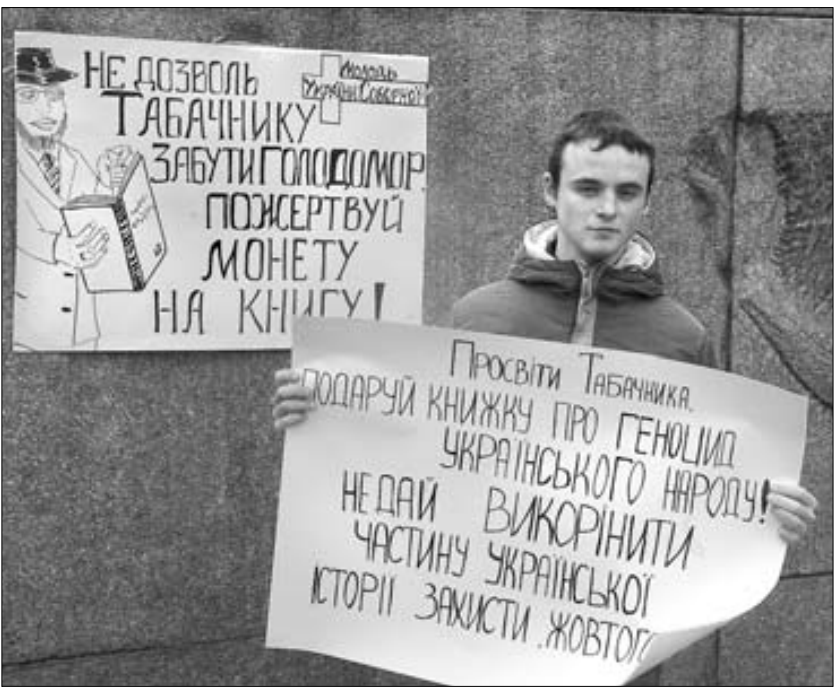 НЕ ДОЗВОЛЬ
ТАБАЧНИКУ
ЗАБУТИ ГОЛОДОМОР.
ПОЖЕРТВУЙ
МОНЕТУ
НА КНИГУ!
МОЛОДЬ
УКРАЇНИ СОБОРНОЇ
ПРОСВІТИ ТАБАЧНИКА.
ПОДАРУЙ КНИЖКУ ПРО ГЕНОЦИД
УКРАЇНСЬКОГО НАРОДУ!
НЕ ДАЙ ВИКОРІНИТИ
ЧАСТИНУ УКРАЇНСЬКОЇ
ІСТОРІЇ ЗАХИСТИ ЖОВТОГО